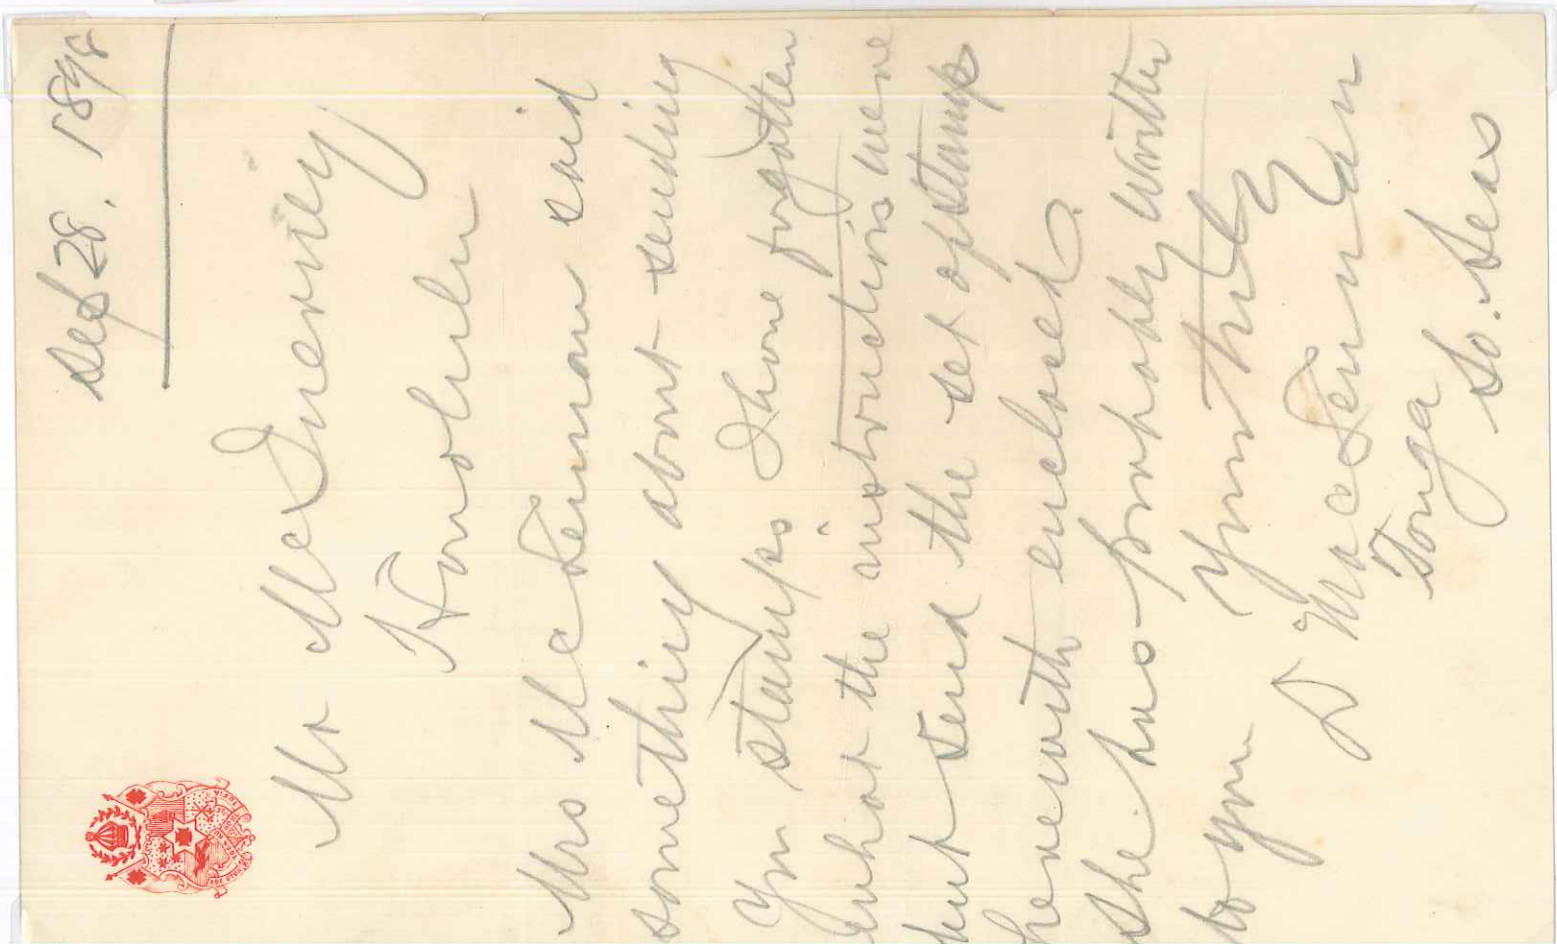 Sep 28, 1898
Mr McInerny
Honolulu
Mrs MacLennan said
something about sending
you stamps. I have forgotten
what the instructions were
but send the set of stamps
herewith enclosed.
She has probably written
to you
Yours truly
D MacLennan
Tonga
So. Seas